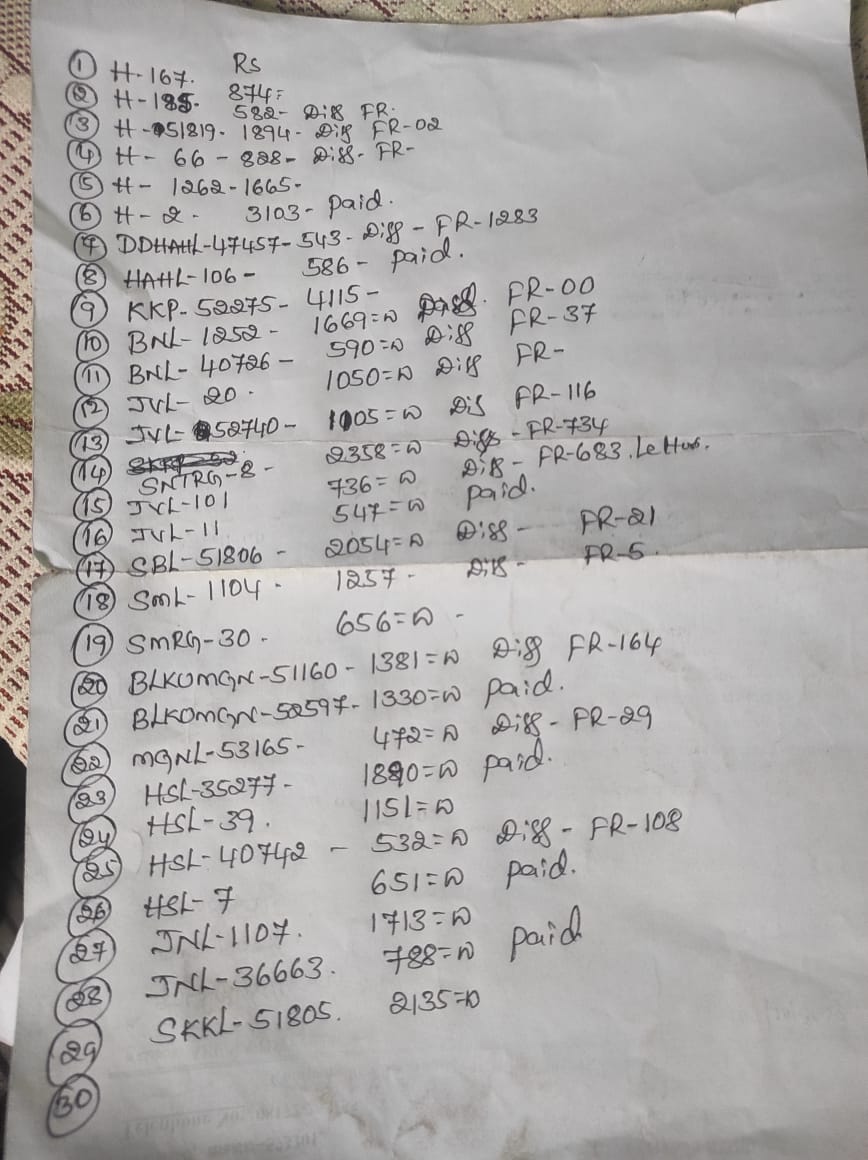 Rs
① H-167. 874=
② H-185. 582- Diff FR.
③ H-51819- 1894- Diff FR-02
④ H- 66 - 828- Diff- FR-
⑤ H- 1262-1665-
⑥ H-2- 3103- Paid.
⑦ DDHAHL-47457-543- Diff - FR-1283
⑧ HAHL-106- 586- Paid.
⑨ KKP-52275- 4115-
⑩ BNL-1252- 1669= FR-00
⑪ BNL-40726- 590= Diff FR-37
⑫ JVL-20. 1050= Diff FR-
⑬ JVL-52740- 1005= Dif FR-116
⑭ SNTRG-8- 2358= Diff - FR-734
⑮ JVL-101 736= Diff - FR-683. Letter.
⑯ JVL-11 547= Paid.
⑰ SBL-51806 - 2054= Diff - FR-21
⑱ SML-1104- 1257- Diff - FR-5.
⑲ SMRG-30. 656= -
⑳ BLKOMGN-51160 - 1381= Diff FR-164
㉑ BLKOMGN-52597- 1330= Paid.
㉒ MGNL-53165- 472= Diff - FR-29
㉓ HSL-35277- 1880= Paid.
㉔ HSL-39. 1151=
㉕ HSL-40742 - 532= Diff - FR-108
㉖ HSL-7 651= Paid.
㉗ JNL-1107. 1713=
㉘ JNL-36663. 788= Paid
㉙ SKKL-51805. 2135=
㉚